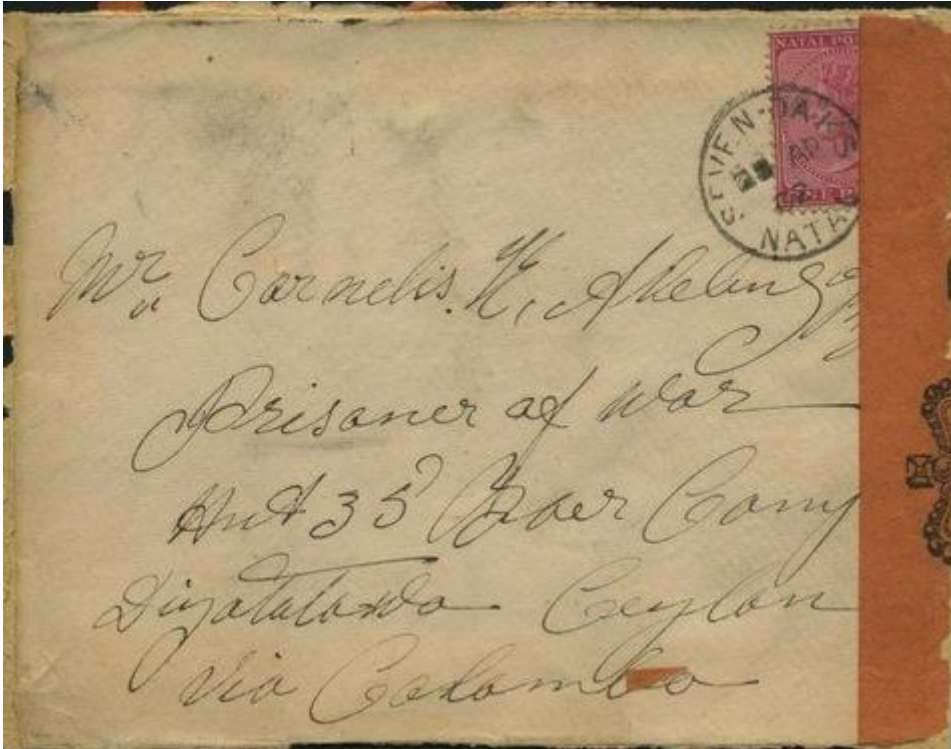 NATAL PO
SEVEN-OAKS
AP
NATA
Mr. Cornelis. H,
Prisoner of War
Hut 35 Boer Camp
Diyatalawa Ceylon
Via Colombo